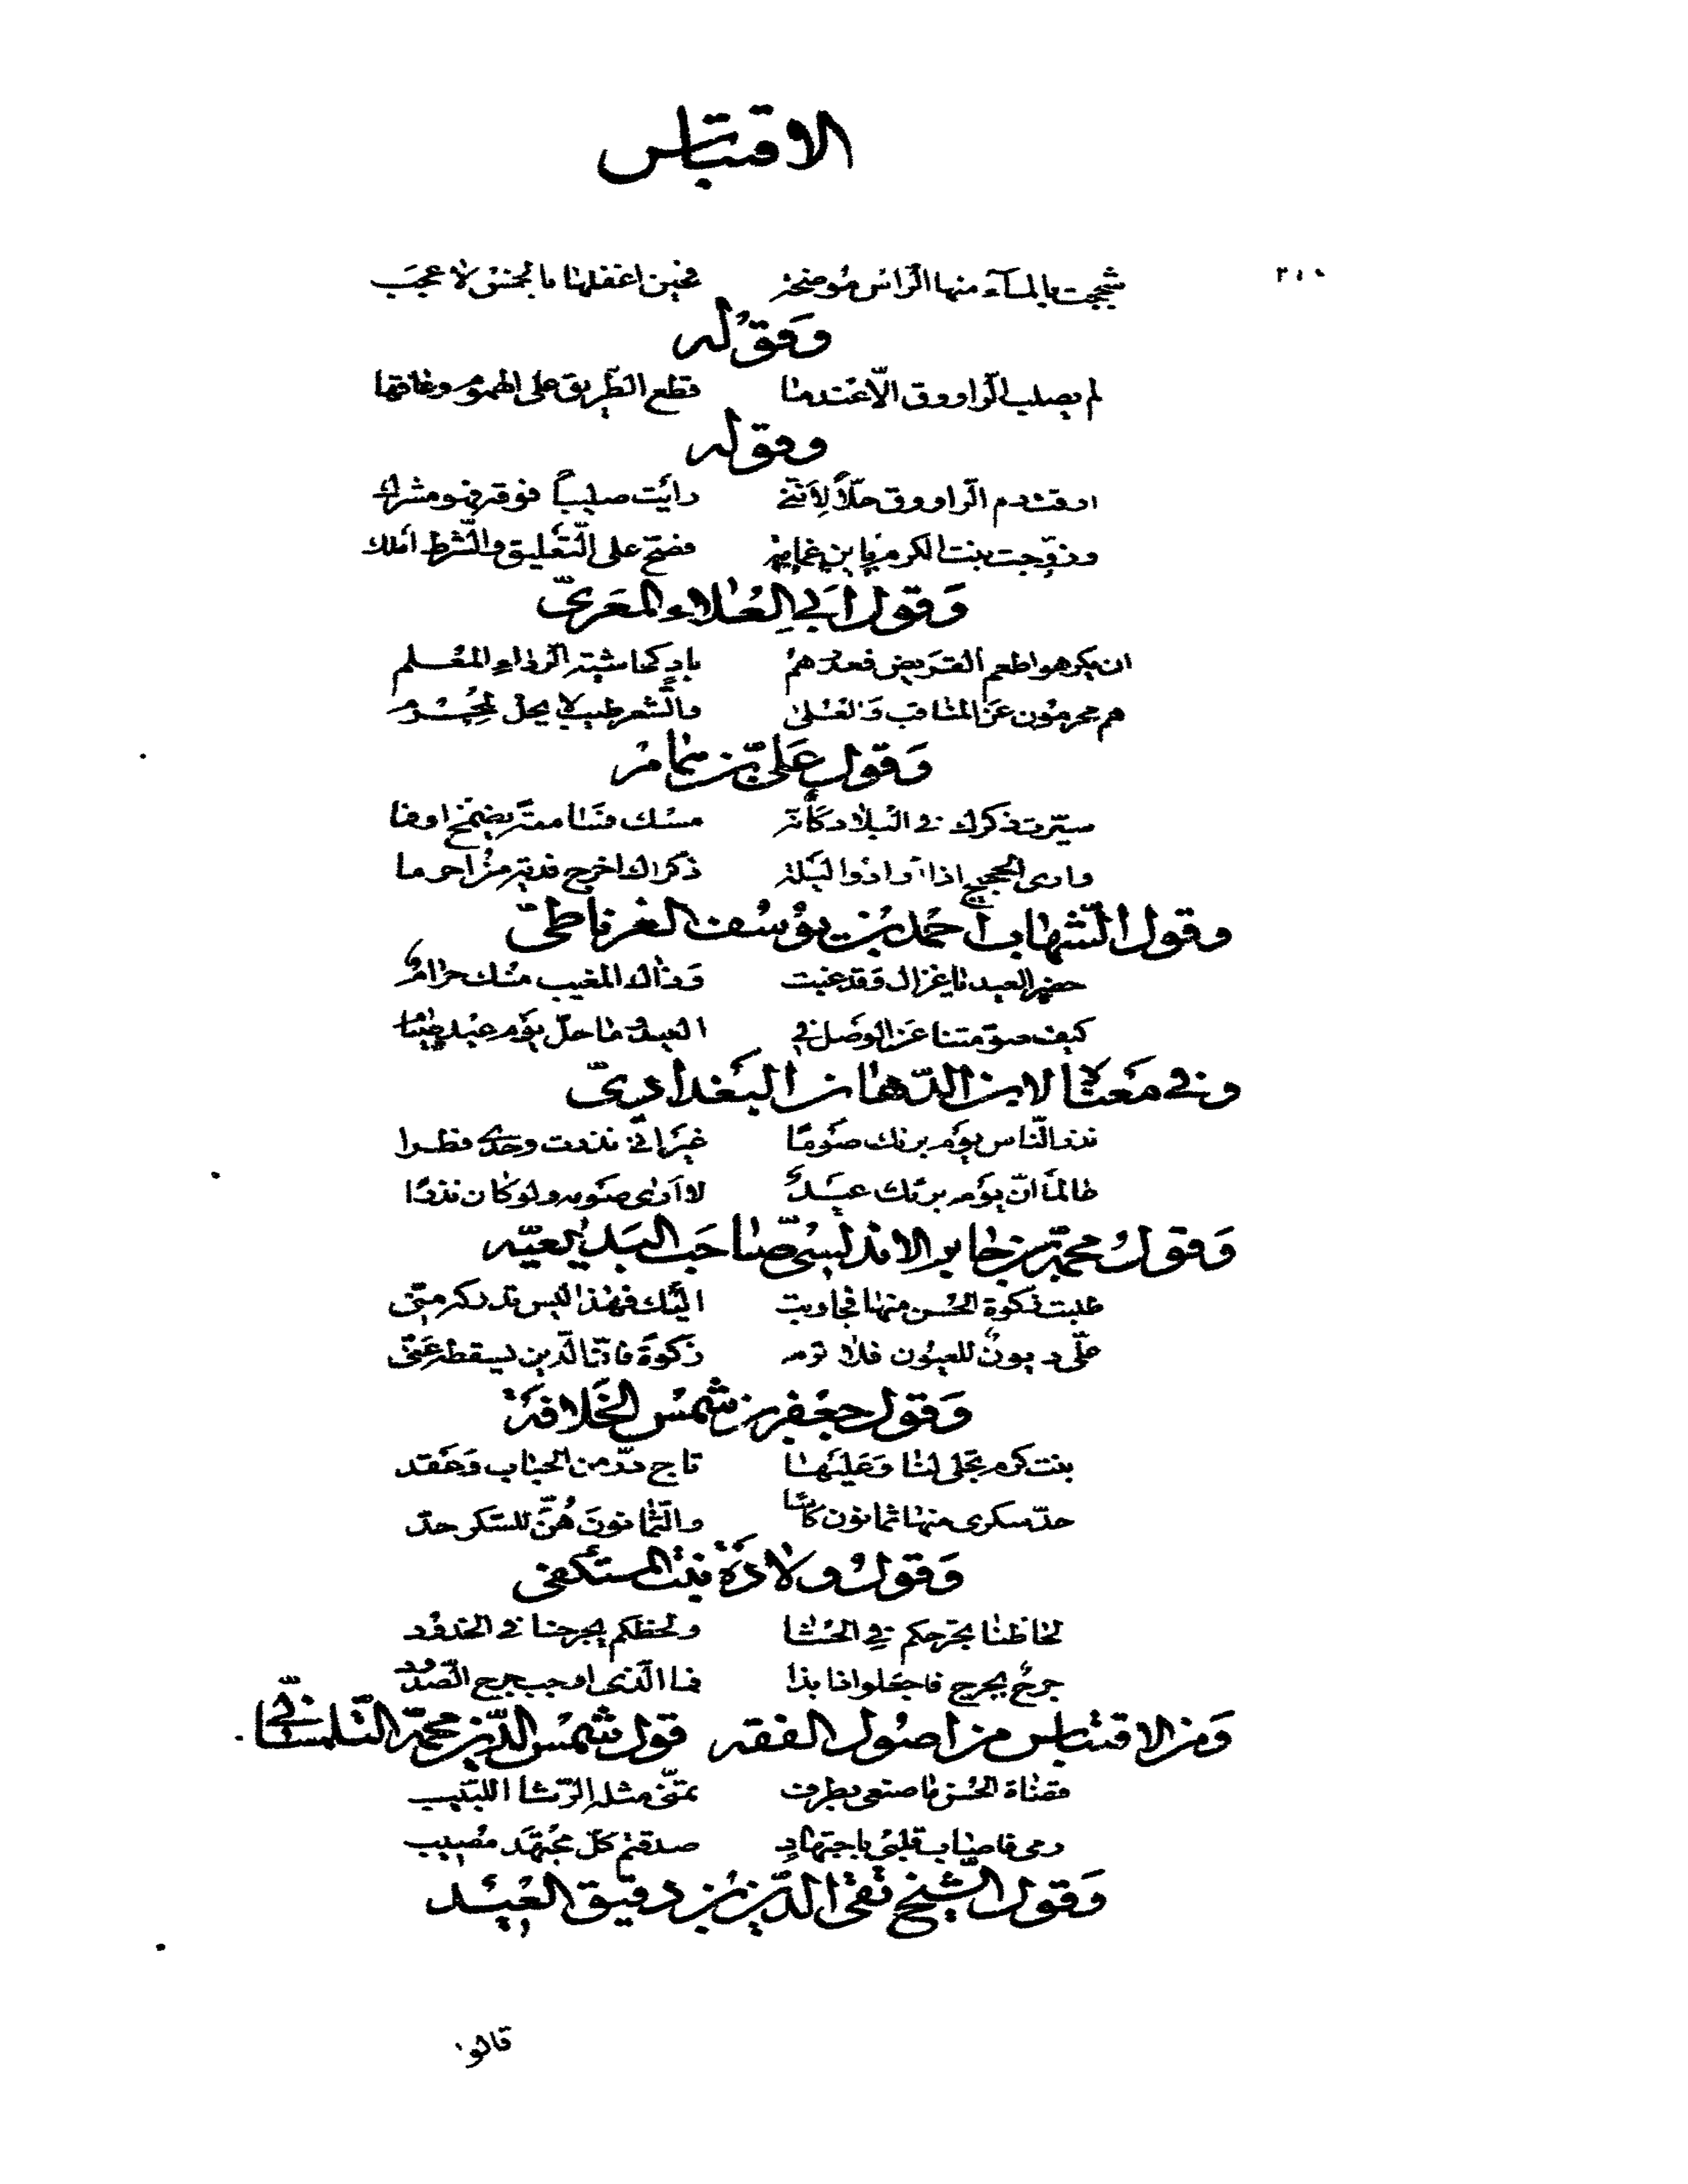 الاقتباس
شججت بالمآء منها الرّاس مُوضحة فحين اعقلها بالخمس لا عجب
وَقوُله
لم يصلب الرّاووق الّا عندما قطع الطّريق على الهموم وعاقها
وقوله
اوقدم الرّاووق حلّاً لِأنّني رايَت صليباً فوقه فهو مشرك
وزوّجت بنت الكرم يا بن غمامة فصحّ على التّعليق والشّرط املك
وَقول أبي العُلاء المعَريّ
ان يكرهوا طعم القريض فعذرهمُ بادٍ كحاشية الرّداء المعُلم
هم محرمُون عَن المناقب وَالعُلى والشّعر طيب لا يحل لمحُرم
وَقول عَلىّ بن تمام
سيّرت ذكرك في البلاد كأنّه مسك فسامعة يضمّخ او فما
وارى الحجيج اذا ارادوا ليلة ذكراك اخرج فدية من احرما
وقول الشّهاب أحمد بن يوُسُف الغرناطىّ
حضر العيد يا غزال وَقد غبت وَذاك المغيب منك حرامُ
كيف صوّمتنا عَن الوصل في العيد ما حلّ يوَم عيد صيامُ
وفي مَعناه لابن الدّهان البَغداديّ
نذر النّاس يوَم برئك صوَمًا غيَر انّي نذرت وحدي فطرا
عالماً انّ يوَم برئك عيَدٌ لا اَرى صوَمه ولو كان نذرًا
وَقولُ محمّد بن جابر الاندلسىّ صاحَب البَديعيّه
طلبت زكوة الحُسن منها فجاوبت اليَك فهٰذا ليس تدركه منّي
علّى ديونٌ للعيُون فلا ترم زكوةً فانّ الدّين يسقطها عَنّى
وَقول جعفر بن شمس الخَلافة
بنت كرم تجلى لنا وَعَليَها تاج درّ من الحباب وَعَقد
حدّ سكرى منها ثمانون كأسًا والثّمانونَ هُنّ للسّكر حدّ
وَقول ولاّدَة بنت المستَكفى
لحاظنا تجرحكم في الحشا ولحظكم يجرحنا في الخدوُد
جرحٌ بجرح فاجعلوا ذا بذا فما الّذى اوجب جرح الصّدوُد
وَمن الاقتباس من اصُول الفقه قول شمس الدّين محمّد التّلمسانيّ
قضاة الحُسن ما صنعى بطرف تمنّى مثله الرّشا اللبَيب
رمى فاصاب قلبي باجتهادٍ صدقتم كلّ مجُتهد مُصيب
وَقول الشّيخ تقى الدّين بن دقيق العيَد
قالوا